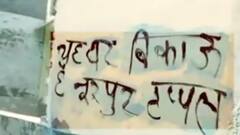 यह घर बिकाऊ
है नूरपुर टप्पल